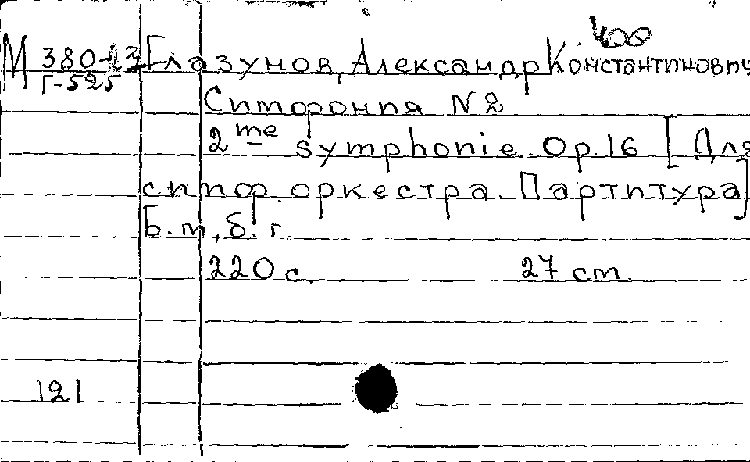 400
М 380-13 Глазунов, Александр Константинович
Г-525
Симфония N 2
2me symphonie. Op. 16 [Для
симф. оркестра. Партитура]
Б. м., б. г.
220 с. 27 cm.
121